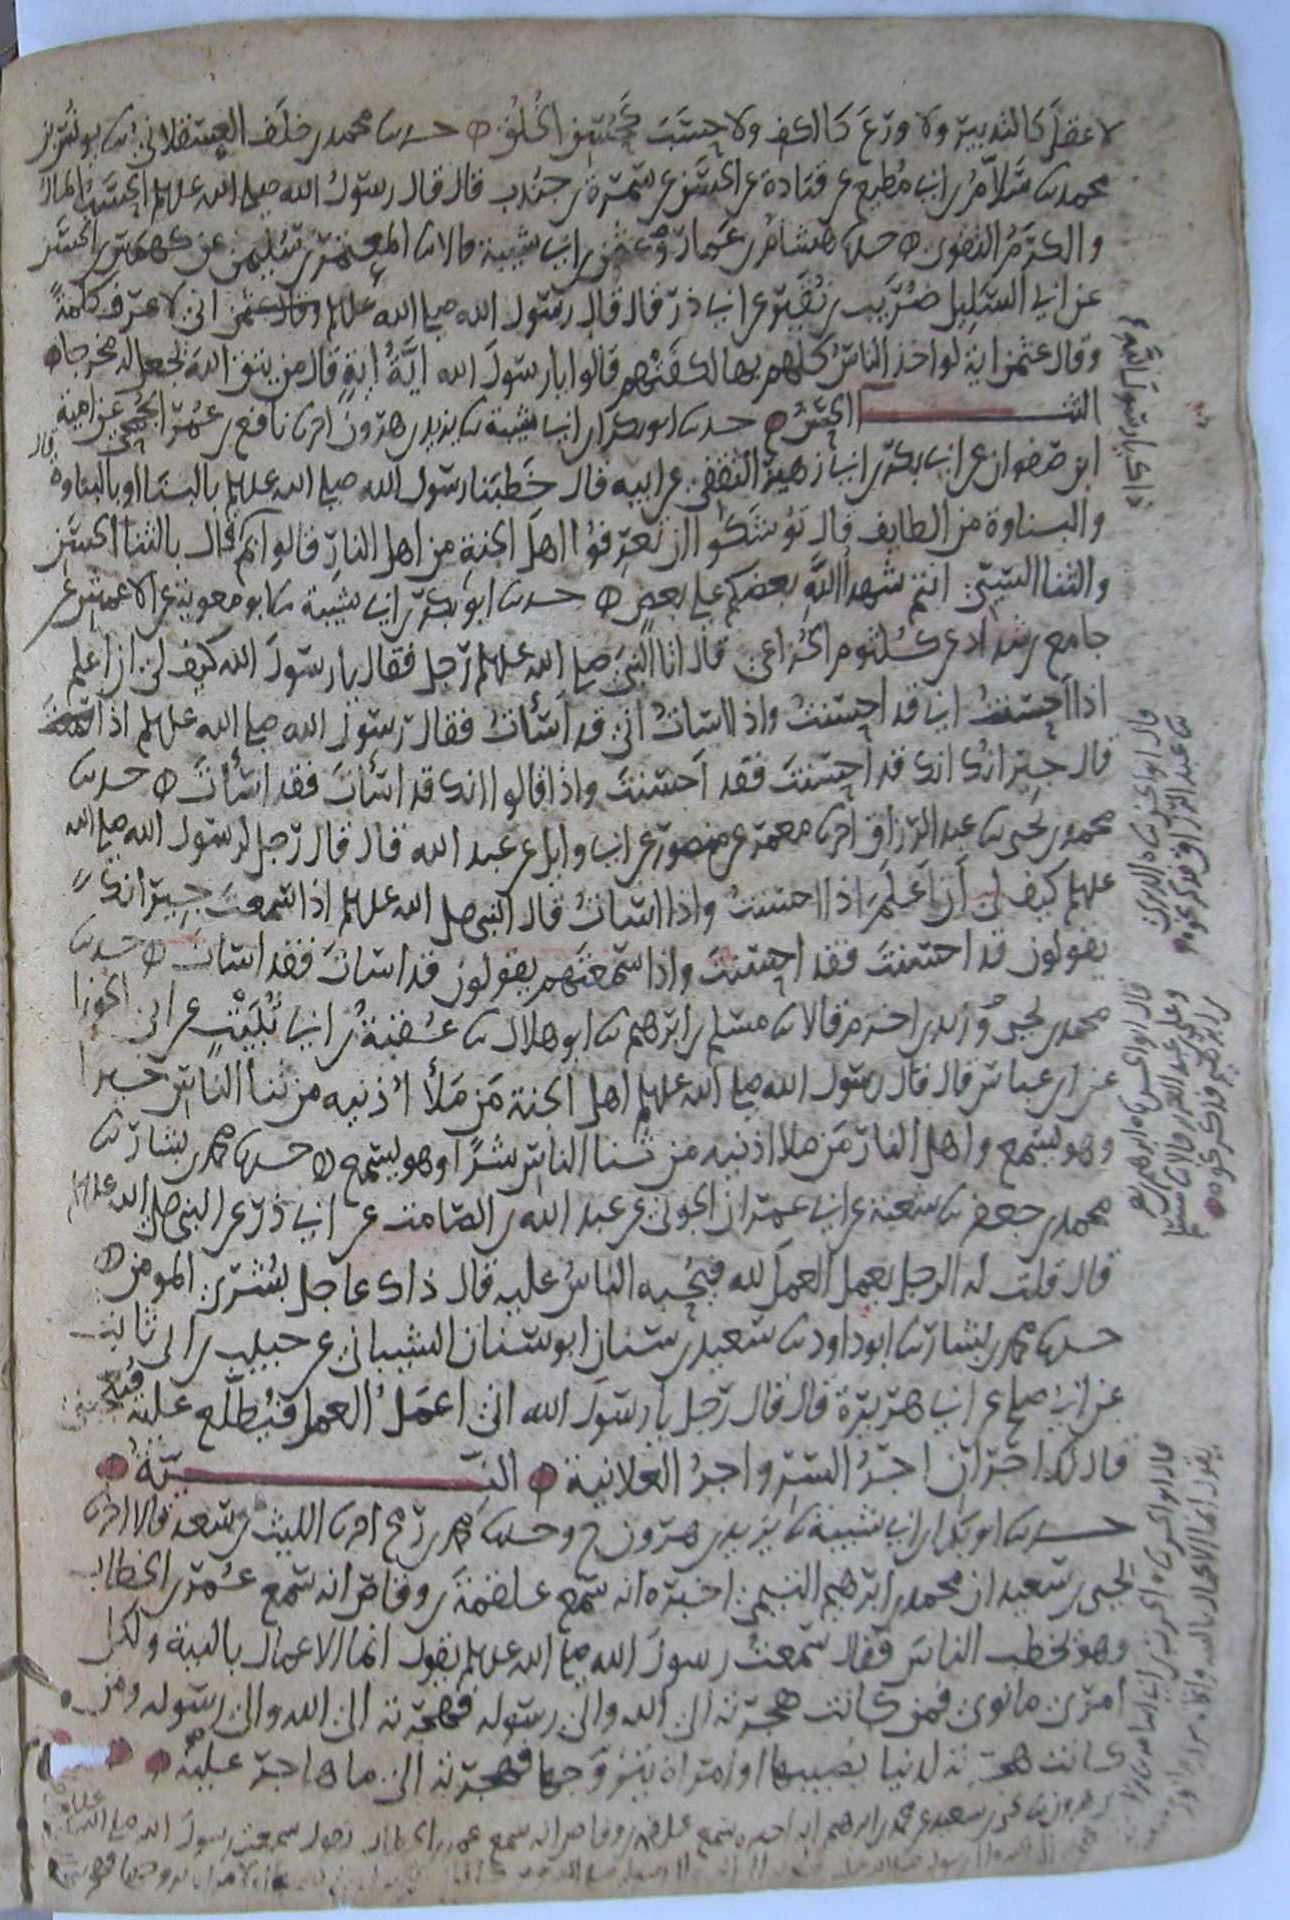 لا عقل كالتدبير ولا ورع كالكف ولا حسب كحسن الخلق ه حدثنا محمد بن خلف العسقلاني ثنا يونس بن
محمد ثنا سلام بن ابي مطيع عن قتادة عن الحسن عن سمرة بن جندب قال قال رسول الله صلى الله عليه وسلم الحسب المال
والكرم التقوى ه حدثنا هشام بن عمار وعثمن بن ابي شيبة قالا ثنا المعتمر بن سليمن عن كهمس بن الحسن
عن ابي السليل ضريب بن نقير عن ابي ذر قال قال رسول الله صلى الله عليه وسلم اني لاعرف كلمة
وقال عثمن اية لو اخذ الناس كلهم بها لكفتهم قالوا يا رسول الله اية اية قال من يتق الله يجعل له مخرجا ه
الثنا الحسن ه حدثنا ابو بكر بن ابي شيبة ثنا يزيد بن هرون اخبرنا نافع بن عمر الجمحي عن امية
ابن صفوان عن ابي بكر بن ابي زهير الثقفي عن ابيه قال خطبنا رسول الله صلى الله عليه وسلم بالنبا او بالنباوة قال
والنباوة من الطايف قال توشكوا ان تعرفوا اهل الجنة من اهل النار قالوا بم قال بالثنا الحسن
والثنا السيئ انتم شهدا الله بعضكم على بعض ه حدثنا ابو بكر بن ابي شيبة ثنا ابو معوية عن الاعمش عن
جامع بن شداد عن كلثوم الخزاعي قال اتا النبي صلى الله عليه وسلم رجل فقال يا رسول الله كيف لي ان اعلم
اذا احسنت اني قد احسنت واذا اسات اني قد اسأت فقال رسول الله صلى الله عليه وسلم اذا
قال جيرانك انك قد احسنت فقد احسنت واذا قالوا انك قد اسأت فقد اسأت ه حدثنا
محمد بن يحيى ثنا عبد الرزاق اخبرنا معمر عن منصور عن ابي وايل عن عبد الله قال قال رجل لرسول الله صلى الله
عليه وسلم كيف لي ان اعلم اذا احسنت واذا اسات قال النبي صلى الله عليه وسلم اذا سمعت جيرانك
يقولون قد احسنت فقد احسنت واذا سمعتهم يقولون قد اسات فقد اسات ه حدثنا
محمد بن يحيى وزيد بن اخزم قالا ثنا مسلم بن ابرهيم ثنا ابو هلال ثنا عقبة بن ابي ثبيت عن ابي الجوزا
عن ابن عباس قال قال رسول الله صلى الله عليه وسلم اهل الجنة من ملأ اذنيه من ثنا الناس خيرا
وهو يسمع واهل النار من ملا اذنيه من ثنا الناس شرا وهو يسمع ه حدثنا محمد بن بشار ثنا
محمد بن جعفر ثنا شعبة عن ابي عمران الجوني عن عبد الله بن الصامت عن ابي ذر عن النبي صلى الله عليه وسلم
قال قلت له الرجل يعمل العمل لله فيحبه الناس عليه قال ذاك عاجل بشرى المومن ه
حدثنا محمد بن بشار ثنا ابو داود ثنا سعيد بن سنان ابو سنان الشيباني عن حبيب بن ابي ثابت
عن ابي صلح عن ابي هريرة قال قال رجل يا رسول الله اني اعمل العمل فيطلع عليه فيعجبني
قال لك اجران اجر السر واجر العلانية ه النيه
حدثنا ابو بكر بن ابي شيبة ثنا يزيد بن هرون ح وحدثنا محمد بن رمح اخبرنا الليث بن سعد قالا اخبرنا
يحيى بن سعيد ان محمد بن ابرهيم التيمي اخبره انه سمع علقمة بن وقاص انه سمع عمر بن الخطاب
وهو يخطب الناس فقال سمعت رسول الله صلى الله عليه وسلم يقول انما الاعمال بالنية ولكل
امرئ ما نوى فمن كانت هجرته الى الله والى رسوله فهجرته الى الله والى رسوله ومن
كانت هجرته لدنيا يصيبها او امراة يتزوجها فهجرته الى ما هاجر عليه
قال ابو الحسن ثنا الدبري
ثنا عبد الرزاق فذكر نحوه
قال ابو الحسن ثنا ابرهيم بن نصر
وعلي بن عبد العزيز قالا ثنا مسلم
بن ابرهيم فذكر نحوه
قال ابو الحسن ثنا الحرث بن ابي اسامة ثنا
بن هرون ثنا يحيى بن سعيد عن محمد بن ابرهيم انه اخبره سمع علقمة بن وقاص انه سمع عمر بن الخطاب يقول سمعت رسول الله صلى الله عليه
يقول انما الاعمال بالنية وانما